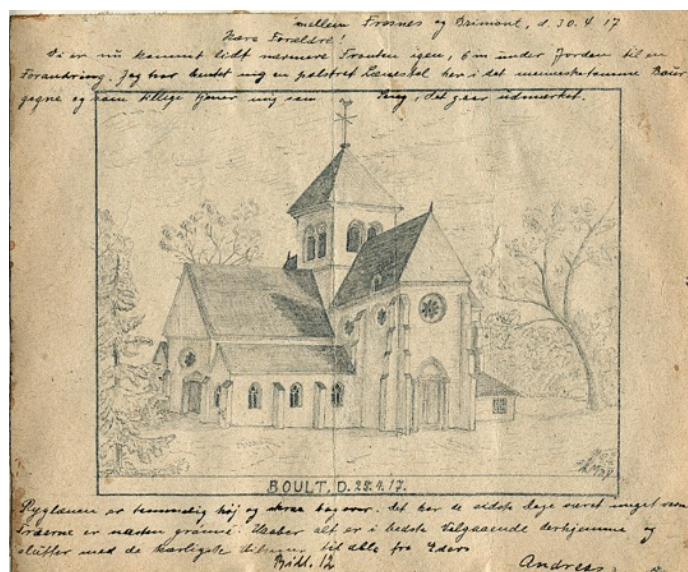 mellem Fresnes og Brimont, d. 30.4.17
Kære Forældre!
Vi er nu kommet lidt nærmere Fronten igen, 6 m under Jorden til en
Forandring. Jeg har hentet mig en polstret Lænestol her i det mennesketomme Boult
og som tillige tjener mig som Seng, det gaar udmærket.
BOULT. D. 28.4.17.
Ryglænen er temmelig høj og skraa bagover. Det har de sidste Dage været meget varm
Træerne er næsten grønne. Haaber alt er i bedste Velgaaende derhjemme og
slutter med de kærligste Hilsener til alle fra Eders
Andreas